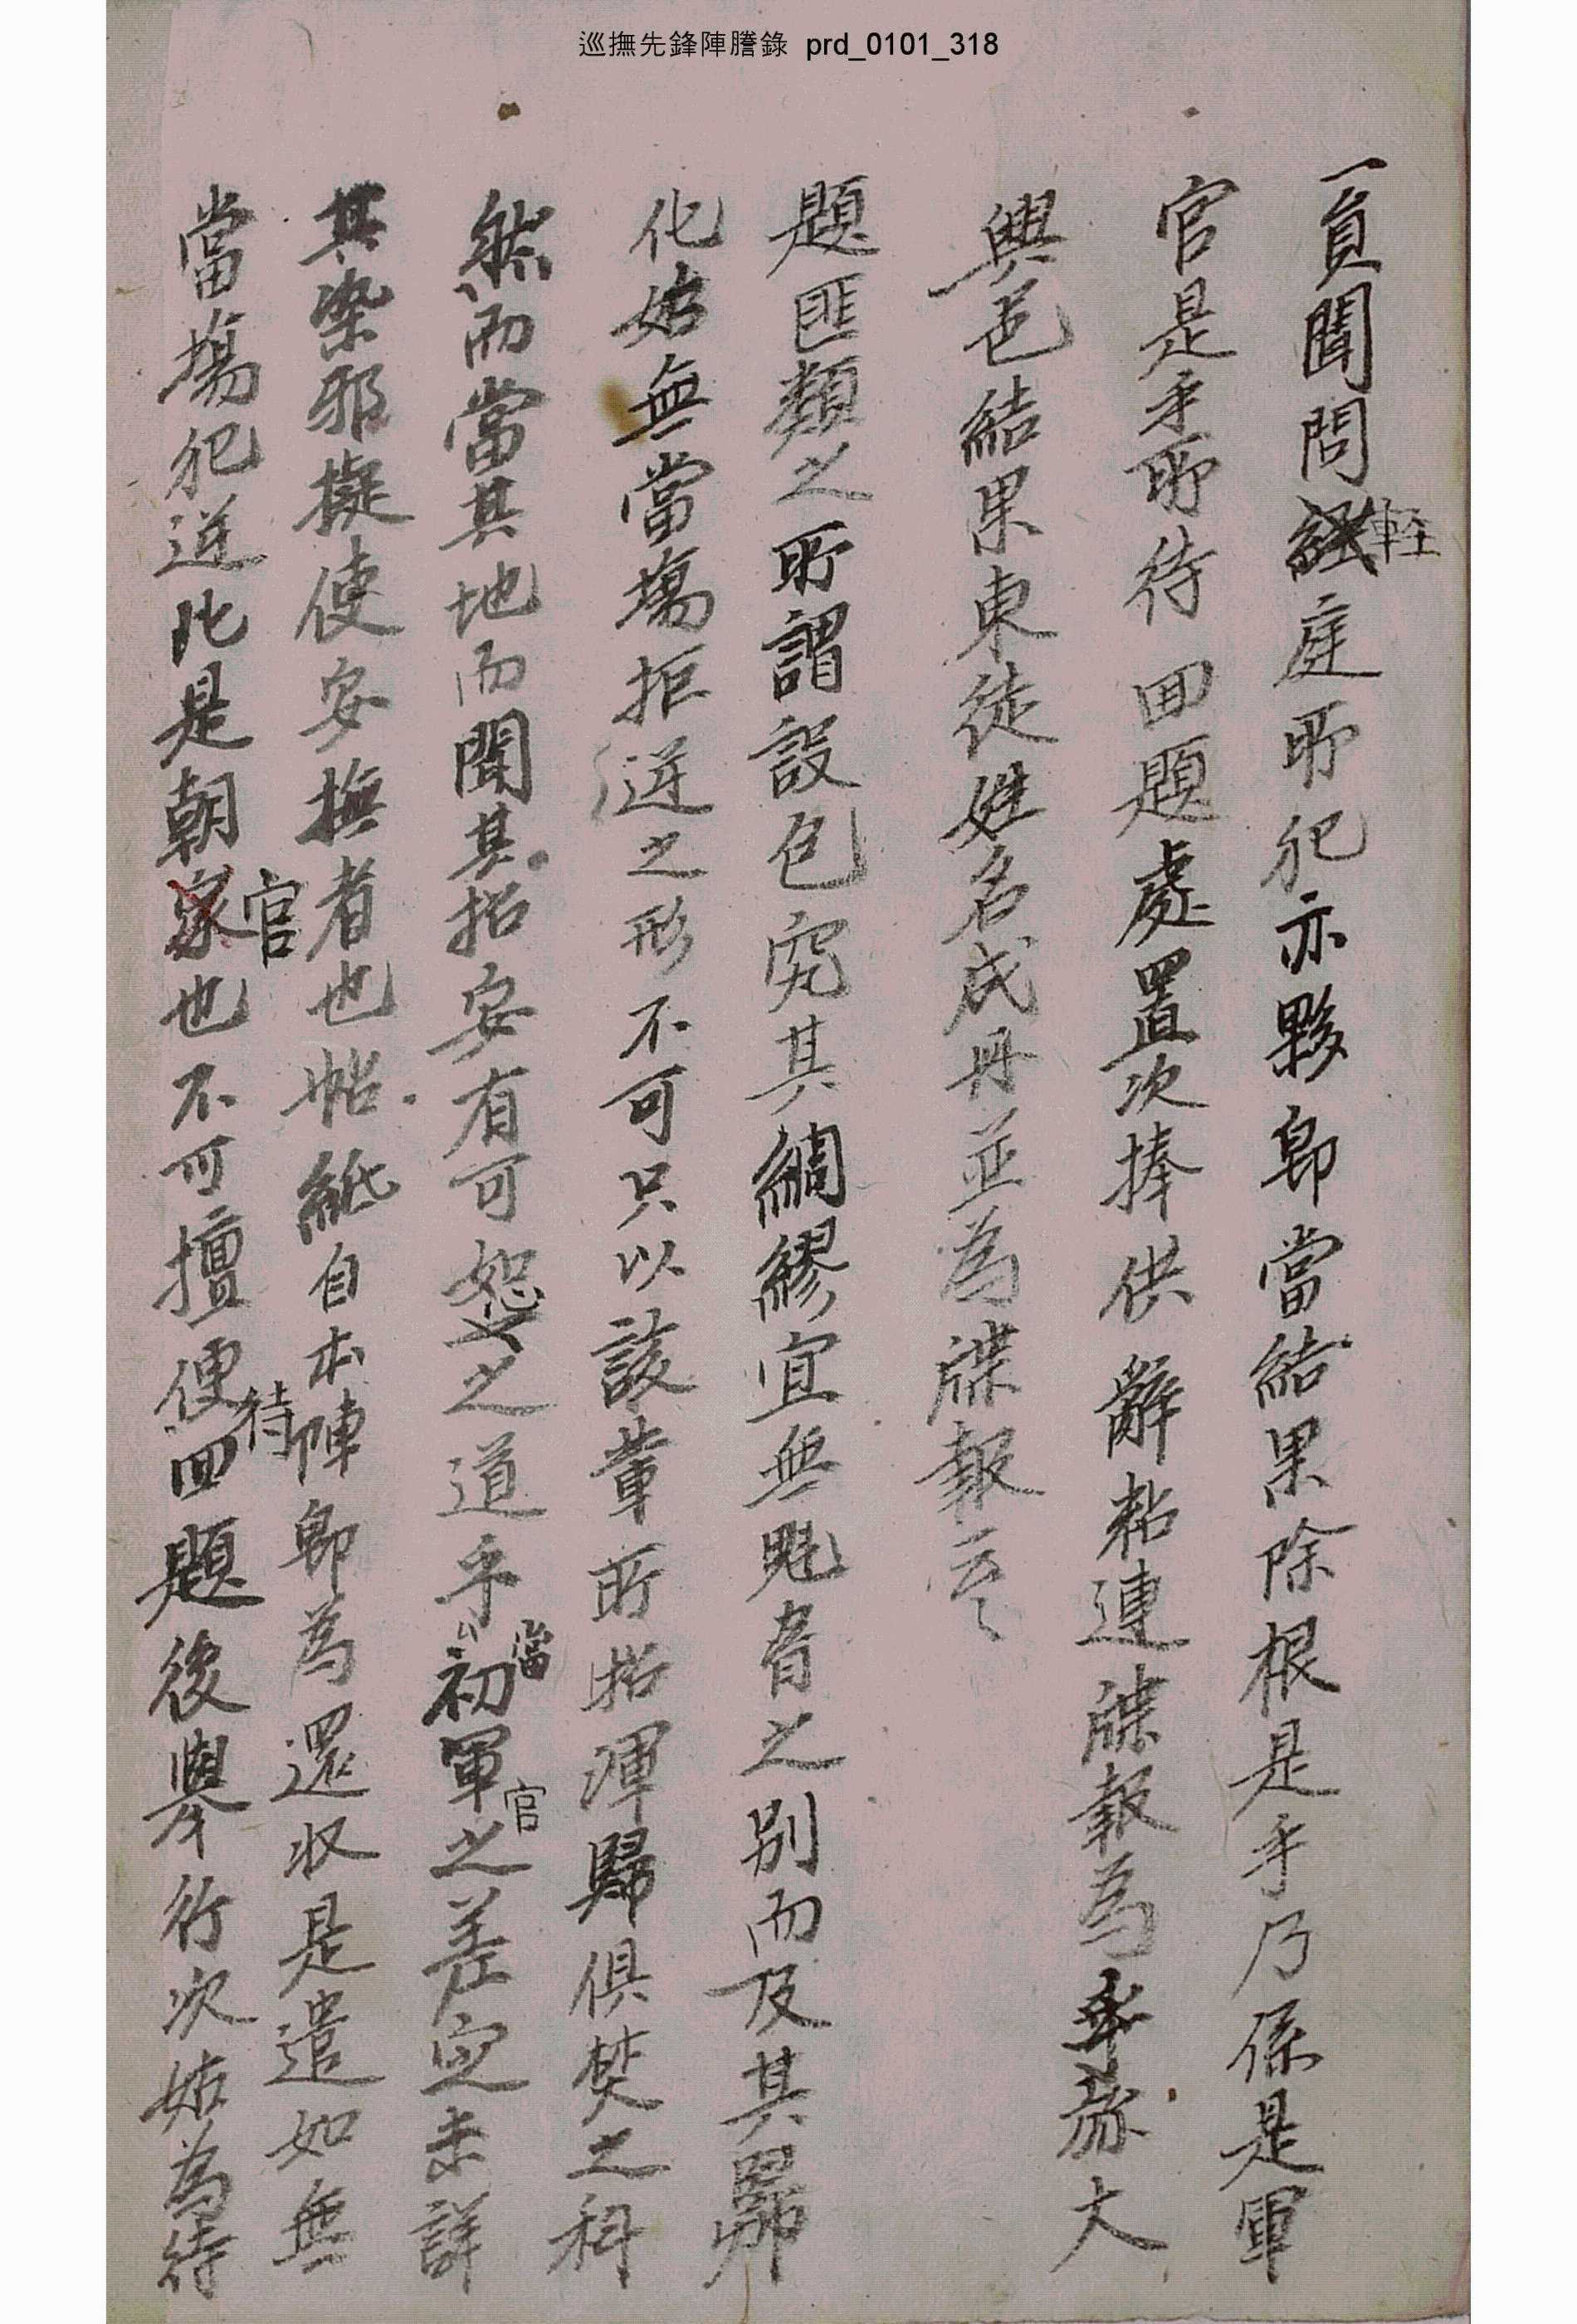 巡撫先鋒陣謄錄 prd_0101_318
一負關問輕庭所犯亦夥卽當結果除根是乎乃係是軍
官是乎所待回題處置次捧供辭粘連牒報爲乎㫆大
興邑結果東徒姓名成冊並爲牒報云云
題匪類之所謂設包究其綢繆宜無覡者之別而及其歸
化始無當場拒逆之形不可只以該輩所招渾歸俱焚之科
然而當其地而聞其招安有可恕之道乎當初軍官之差定未詳
其染邪擬使安撫者也帖紙自本陣卽爲還収是遣如無
當場犯逆此是朝官也不可擅便待回題後擧行次姑爲待